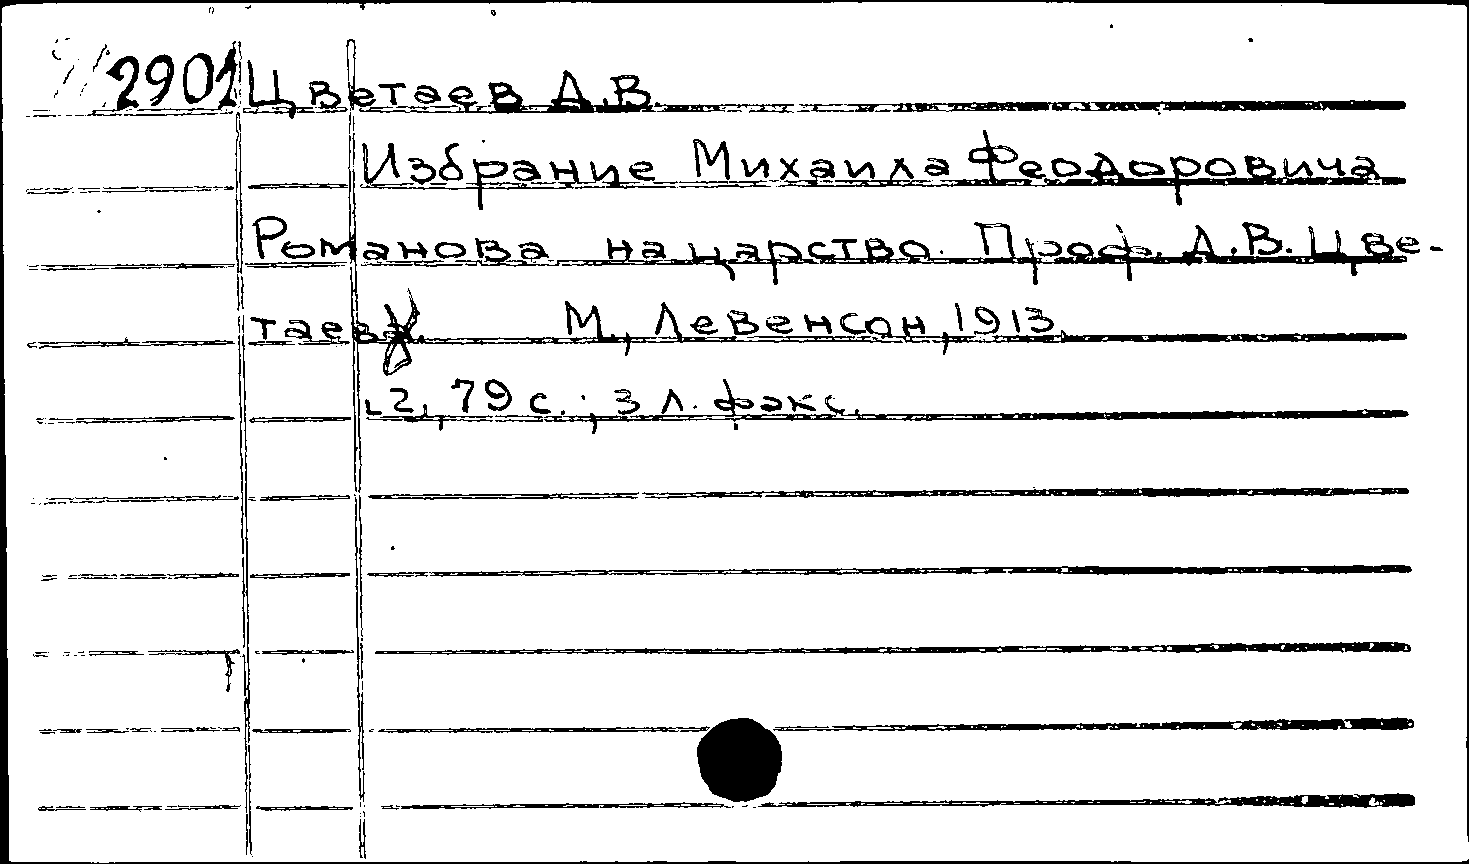 2901 Цветаев Д.В.
Избрание Михаила Феодоровича
Романова на царство. Проф. Д.В. Цве-
таева. М., Левенсон, 1913.
2, 79 с.; 3 л. факс.